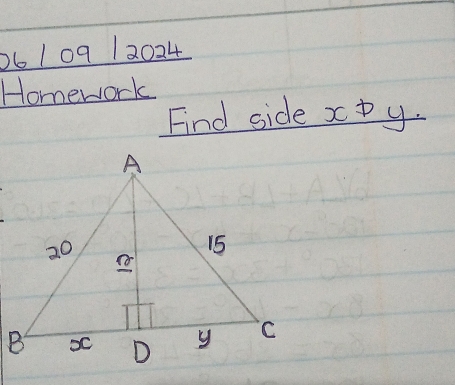 06/09/2024
Homework
Find side x & y.
A
20
15
B
x
D
y
C